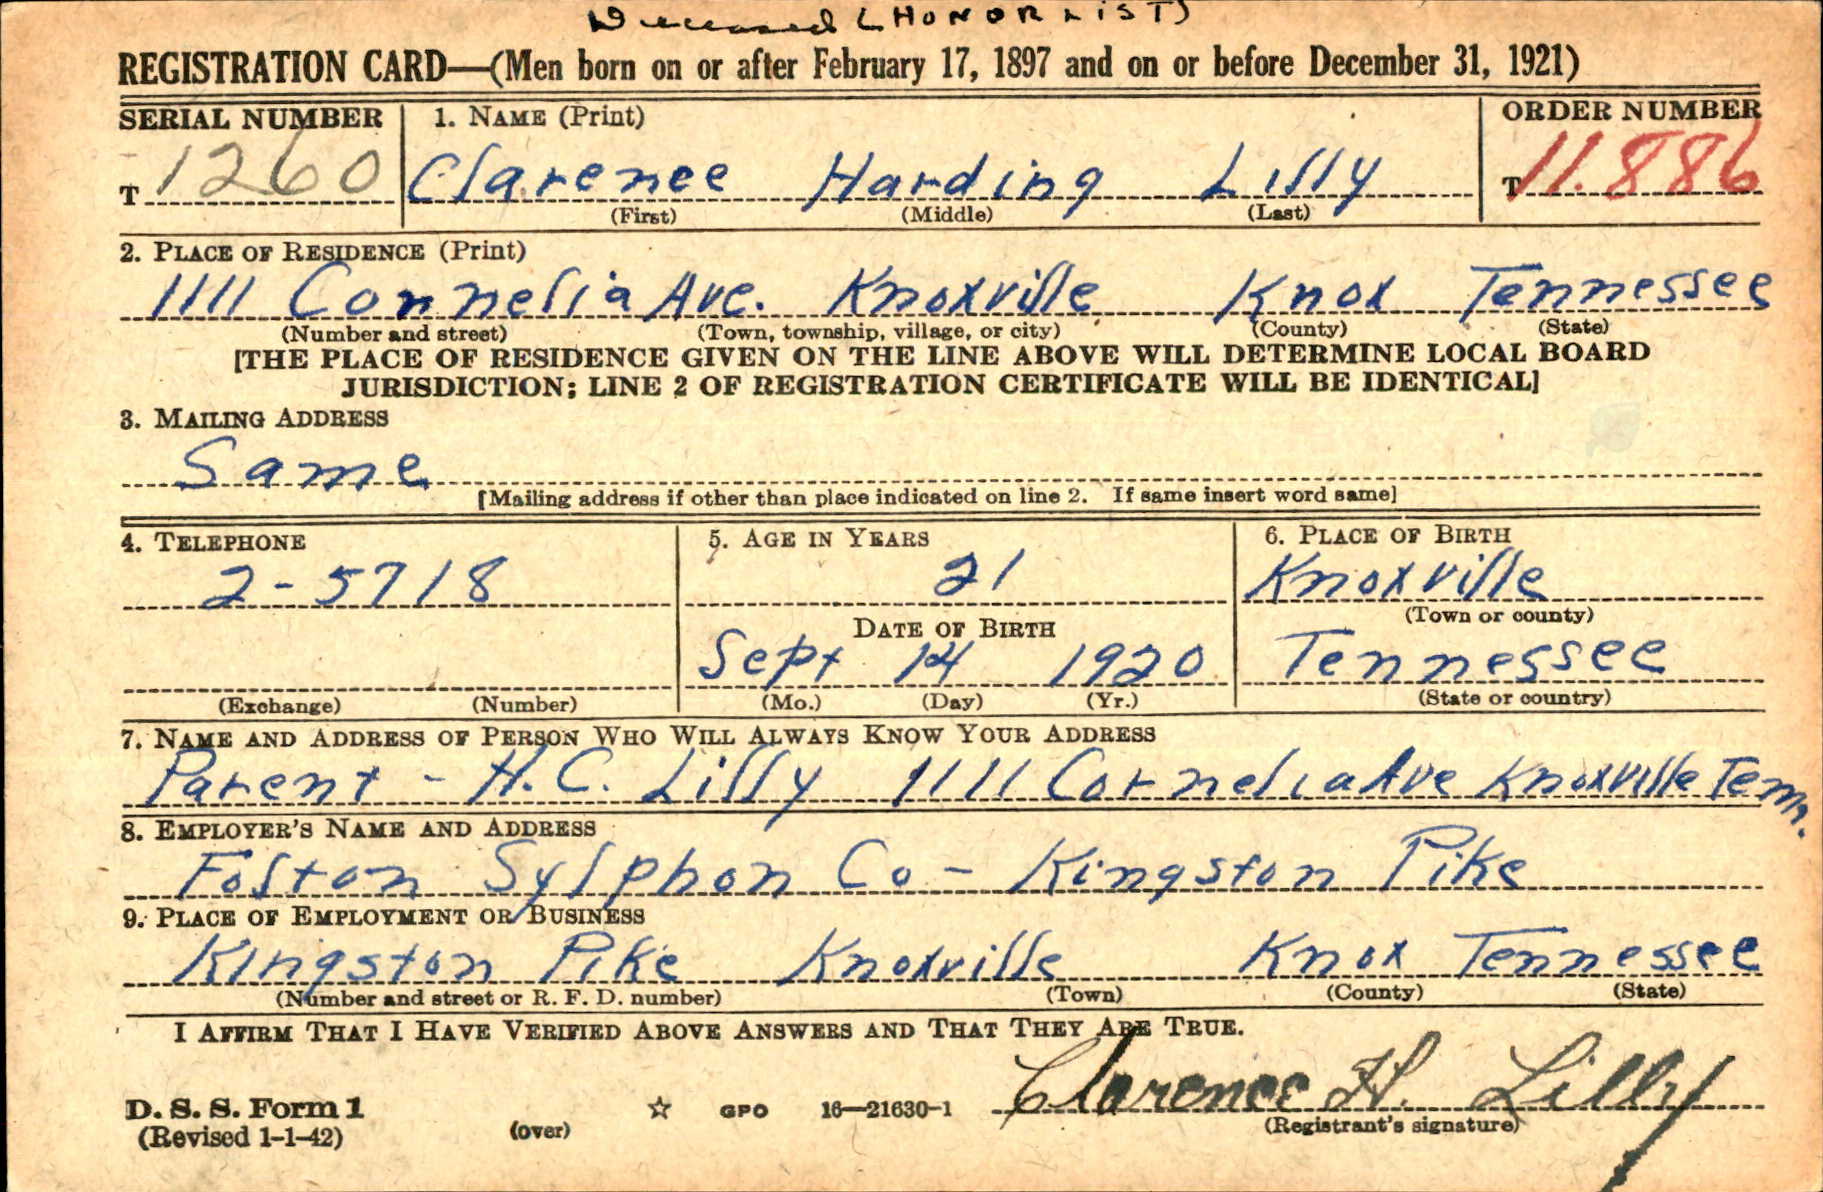 Deceased (HONOR LIST)
REGISTRATION CARD—(Men born on or after February 17, 1897 and on or before December 31, 1921)
SERIAL NUMBER 1. NAME (Print) ORDER NUMBER
T 1260 Clarence Harding Lilly T 11.886
(First) (Middle) (Last)
2. PLACE OF RESIDENCE (Print)
1111 Cornelia Ave. Knoxville Knox Tennessee
(Number and street) (Town, township, village, or city) (County) (State)
[THE PLACE OF RESIDENCE GIVEN ON THE LINE ABOVE WILL DETERMINE LOCAL BOARD
JURISDICTION; LINE 2 OF REGISTRATION CERTIFICATE WILL BE IDENTICAL]
3. MAILING ADDRESS
Same
[Mailing address if other than place indicated on line 2. If same insert word same]
4. TELEPHONE 5. AGE IN YEARS 6. PLACE OF BIRTH
2-5718 21 Knoxville
(Town or county)
DATE OF BIRTH
Sept 14 1920 Tennessee
(Exchange) (Number) (Mo.) (Day) (Yr.) (State or country)
7. NAME AND ADDRESS OF PERSON WHO WILL ALWAYS KNOW YOUR ADDRESS
Parent - H.C. Lilly 1111 Cornelia Ave Knoxville Tenn.
8. EMPLOYER'S NAME AND ADDRESS
Folton Sylphon Co - Kingston Pike
9. PLACE OF EMPLOYMENT OR BUSINESS
Kingston Pike Knoxville Knox Tennessee
(Number and street or R. F. D. number) (Town) (County) (State)
I AFFIRM THAT I HAVE VERIFIED ABOVE ANSWERS AND THAT THEY ARE TRUE.
Clarence H. Lilly
D. S. S. Form 1 ☆ GPO 16—21630-1 (Registrant's signature)
(Revised 1-1-42) (over)